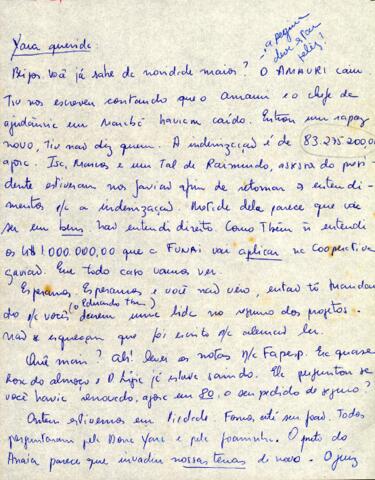 Yara querida:
a pequena
deve estar
feliz!
Beijos. Você já sabe de novidade maior? O AMAURI com
Tiv nos escreveu contando que o Amauri e o chefe da
ajudância em Marabá haviam caído. Entrou um rapaz
novo, Tiv não diz quem. A indenização é de 83.275.200,00
agora. Isa, Marcos e um tal de Raimundo, assessor do presi-
dente estiveram nos gaviões afim de retomar os entendi-
mentos p/c a indenização. Metade dela parece que vai
ser em bens não entendi direito. Como Também ñ entendi
os US$ 1.000.000,00 que a FUNAI vai aplicar na Cooperativa
gavião. Em todo caso vamos ver.
Esperamos, Esperamos e você não veio, então tô mandan-
do p/c você (o Eduardo tem) darem uma lida no resumo dos projetos.
não se esqueçam que foi escrito p/c alemão ler.
Quê mais? Ah! levei as notas p/c Fapesp. Era quase
hora do almoço e o já estava saindo. Ele perguntou se
você havia renovado, agora em 80, o seu pedido de seguro?
Ontem estivemos em Piedade. Fomos até seu José. Todos
perguntaram pela Dona Yara e pela Joaninha. O preto do
parece que invadiu nossas terras de novo. O juiz